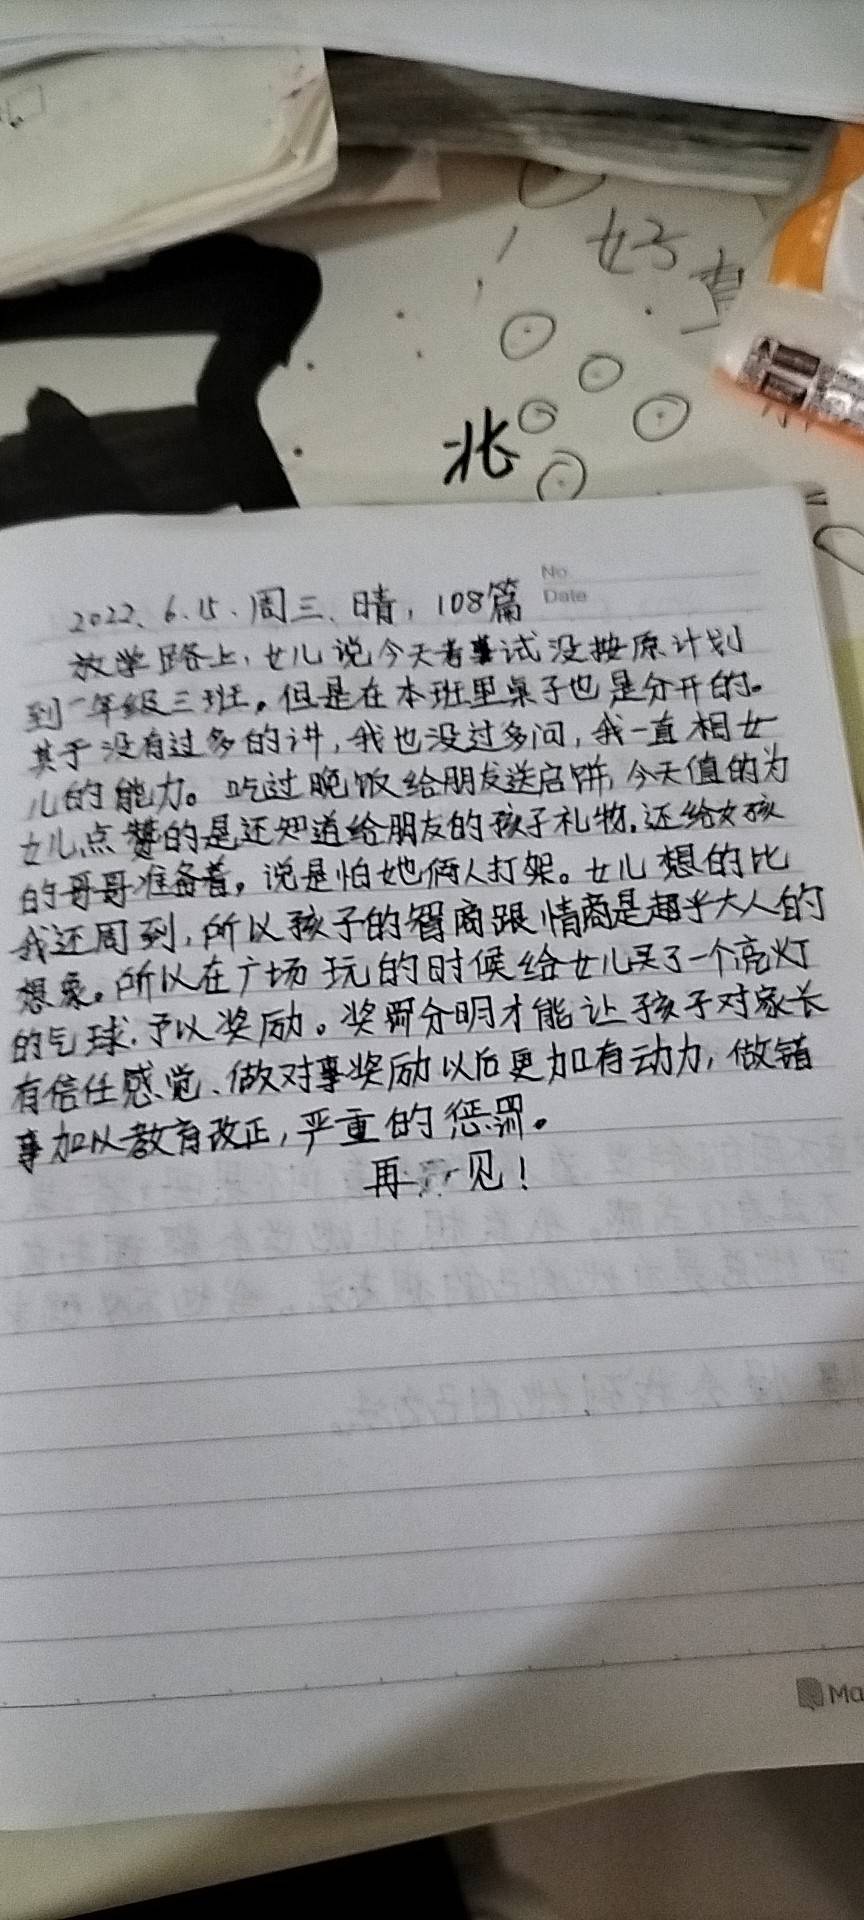 好
北
No
Date
2022、6.15.周三、晴，108篇
放学路上，女儿说今天考试没按原计划
到一年级三班。但是在本班里桌子也是分开的。
其于没有过多的讲，我也没过多问，我一直相女
儿的能力。吃过晚饭给朋友送启饼，今天值的为
女儿点赞的是还知道给朋友的孩子礼物，还给女孩
的哥哥准备着，说是怕她俩人打架。女儿想的比
我还周到，所以孩子的智商跟情商是超乎大人的
想象。所以在广场玩的时候给女儿买了一个亮灯
的气球，予以奖励。奖罚分明才能让孩子对家长
有信任感觉、做对事奖励以后更加有动力，做错
事加以教育改正，严重的惩罚。
再见！
Ma